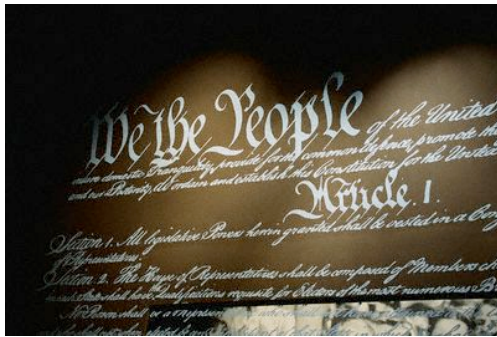 We the People of the United
insure domestic Tranquility, provide for the common defence, promote the
and our Posterity, do ordain and establish this Constitution for the United
Article. I.
Section 1. All legislative Powers herein granted shall be vested in a Cong
of Representatives.
Section. 2. The House of Representatives shall be composed of Members ch
in each State shall have Qualifications requisite for Electors of the most numerous B
No Person shall